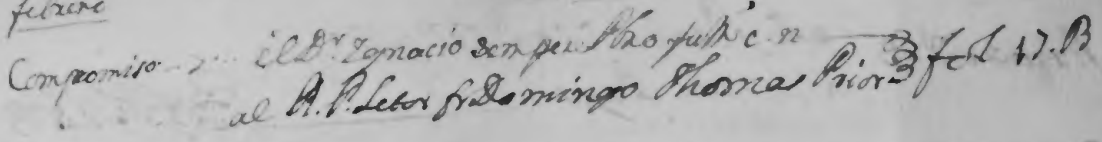 febrero
Compromiso el Dr. Ygnacio semper Pbro
al R. P. Letor fr Domingo Thomas Prior 3 fol 17. B